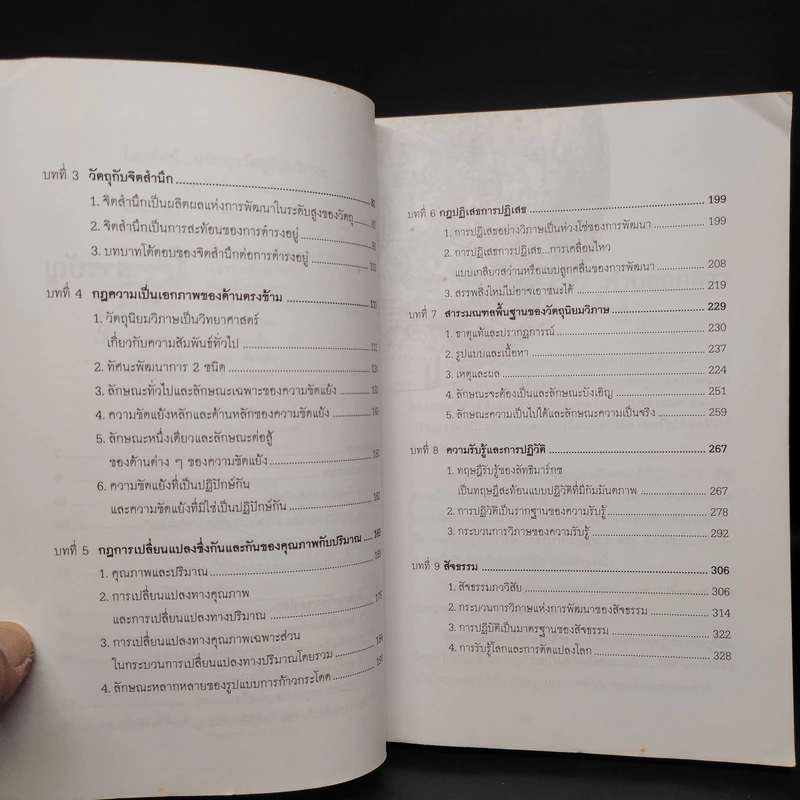 บทที่ 3 วัตถุกับจิตสำนึก
1. จิตสำนึกเป็นผลิตผลแห่งการพัฒนาในระดับสูงของวัตถุ
2. จิตสำนึกเป็นการสะท้อนของการดำรงอยู่
3. บทบาทโต้ตอบของจิตสำนึกต่อการดำรงอยู่
บทที่ 4 กฎความเป็นเอกภาพของด้านตรงข้าม
1. วัตถุนิยมวิภาษเป็นวิทยาศาสตร์
เกี่ยวกับความสัมพันธ์ทั่วไป
2. ทัศนะพัฒนาการ 2 ชนิด
3. ลักษณะทั่วไปและลักษณะเฉพาะของความขัดแย้ง
4. ความขัดแย้งหลักและด้านหลักของความขัดแย้ง
5. ลักษณะหนึ่งเดียวและลักษณะต่อสู้
ของด้านต่าง ๆ ของความขัดแย้ง 160
6. ความขัดแย้งที่เป็นปฏิปักษ์กัน
และความขัดแย้งที่มิใช่เป็นปฏิปักษ์กัน
บทที่ 5 กฎการเปลี่ยนแปลงซึ่งกันและกันของคุณภาพกับปริมาณ
1. คุณภาพและปริมาณ
2. การเปลี่ยนแปลงทางคุณภาพ
และการเปลี่ยนแปลงทางปริมาณ
3. การเปลี่ยนแปลงทางคุณภาพเฉพาะส่วน
ในกระบวนการเปลี่ยนแปลงทางปริมาณโดยรวม
4. ลักษณะหลากหลายของรูปแบบการก้าวกระโดด
บทที่ 6 กฎปฏิเสธการปฏิเสธ 199
1. การปฏิเสธอย่างวิภาษเป็นห่วงโซ่ของการพัฒนา 199
2. การปฏิเสธการปฏิเสธ...การเคลื่อนไหว
แบบเกลียวสว่านหรือแบบลูกคลื่นของการพัฒนา 208
3. สรรพสิ่งใหม่มิอาจเอาชนะได้ 219
บทที่ 7 สาระมณฑลพื้นฐานของวัตถุนิยมวิภาษ 229
1. ธาตุแท้และปรากฏการณ์ 230
2. รูปแบบและเนื้อหา 237
3. เหตุและผล 224
4. ลักษณะจะต้องเป็นและลักษณะบังเอิญ 251
5. ลักษณะความเป็นไปได้และลักษณะความเป็นจริง 259
บทที่ 8 ความรับรู้และการปฏิวัติ 267
1. ทฤษฎีรับรู้ของลัทธิมาร์กซ
เป็นทฤษฎีสะท้อนแบบปฏิวัติที่มีกัมมันตภาพ 267
2. การปฏิวัติเป็นรากฐานของความรับรู้ 278
3. กระบวนการวิภาษของความรับรู้ 292
บทที่ 9 สัจธรรม 306
1. สัจธรรมภววิสัย 306
2. กระบวนการวิภาษแห่งการพัฒนาของสัจธรรม 314
3. การปฏิบัติเป็นมาตรฐานของสัจธรรม 322
4. การรับรู้โลกและการดัดแปลงโลก 328